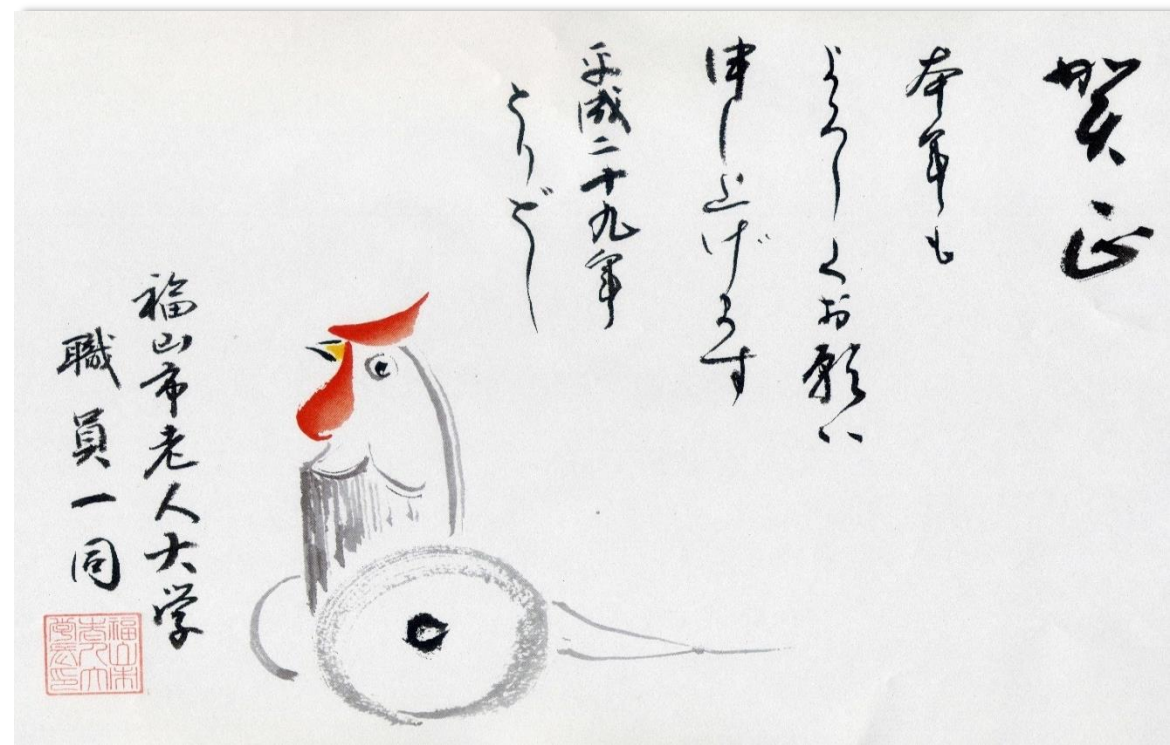 賀正
本年も
よろしくお願い
申し上げます
平成二十九年
とりどし
福山市老人大学
職員一同
福山市
老人大
学長印